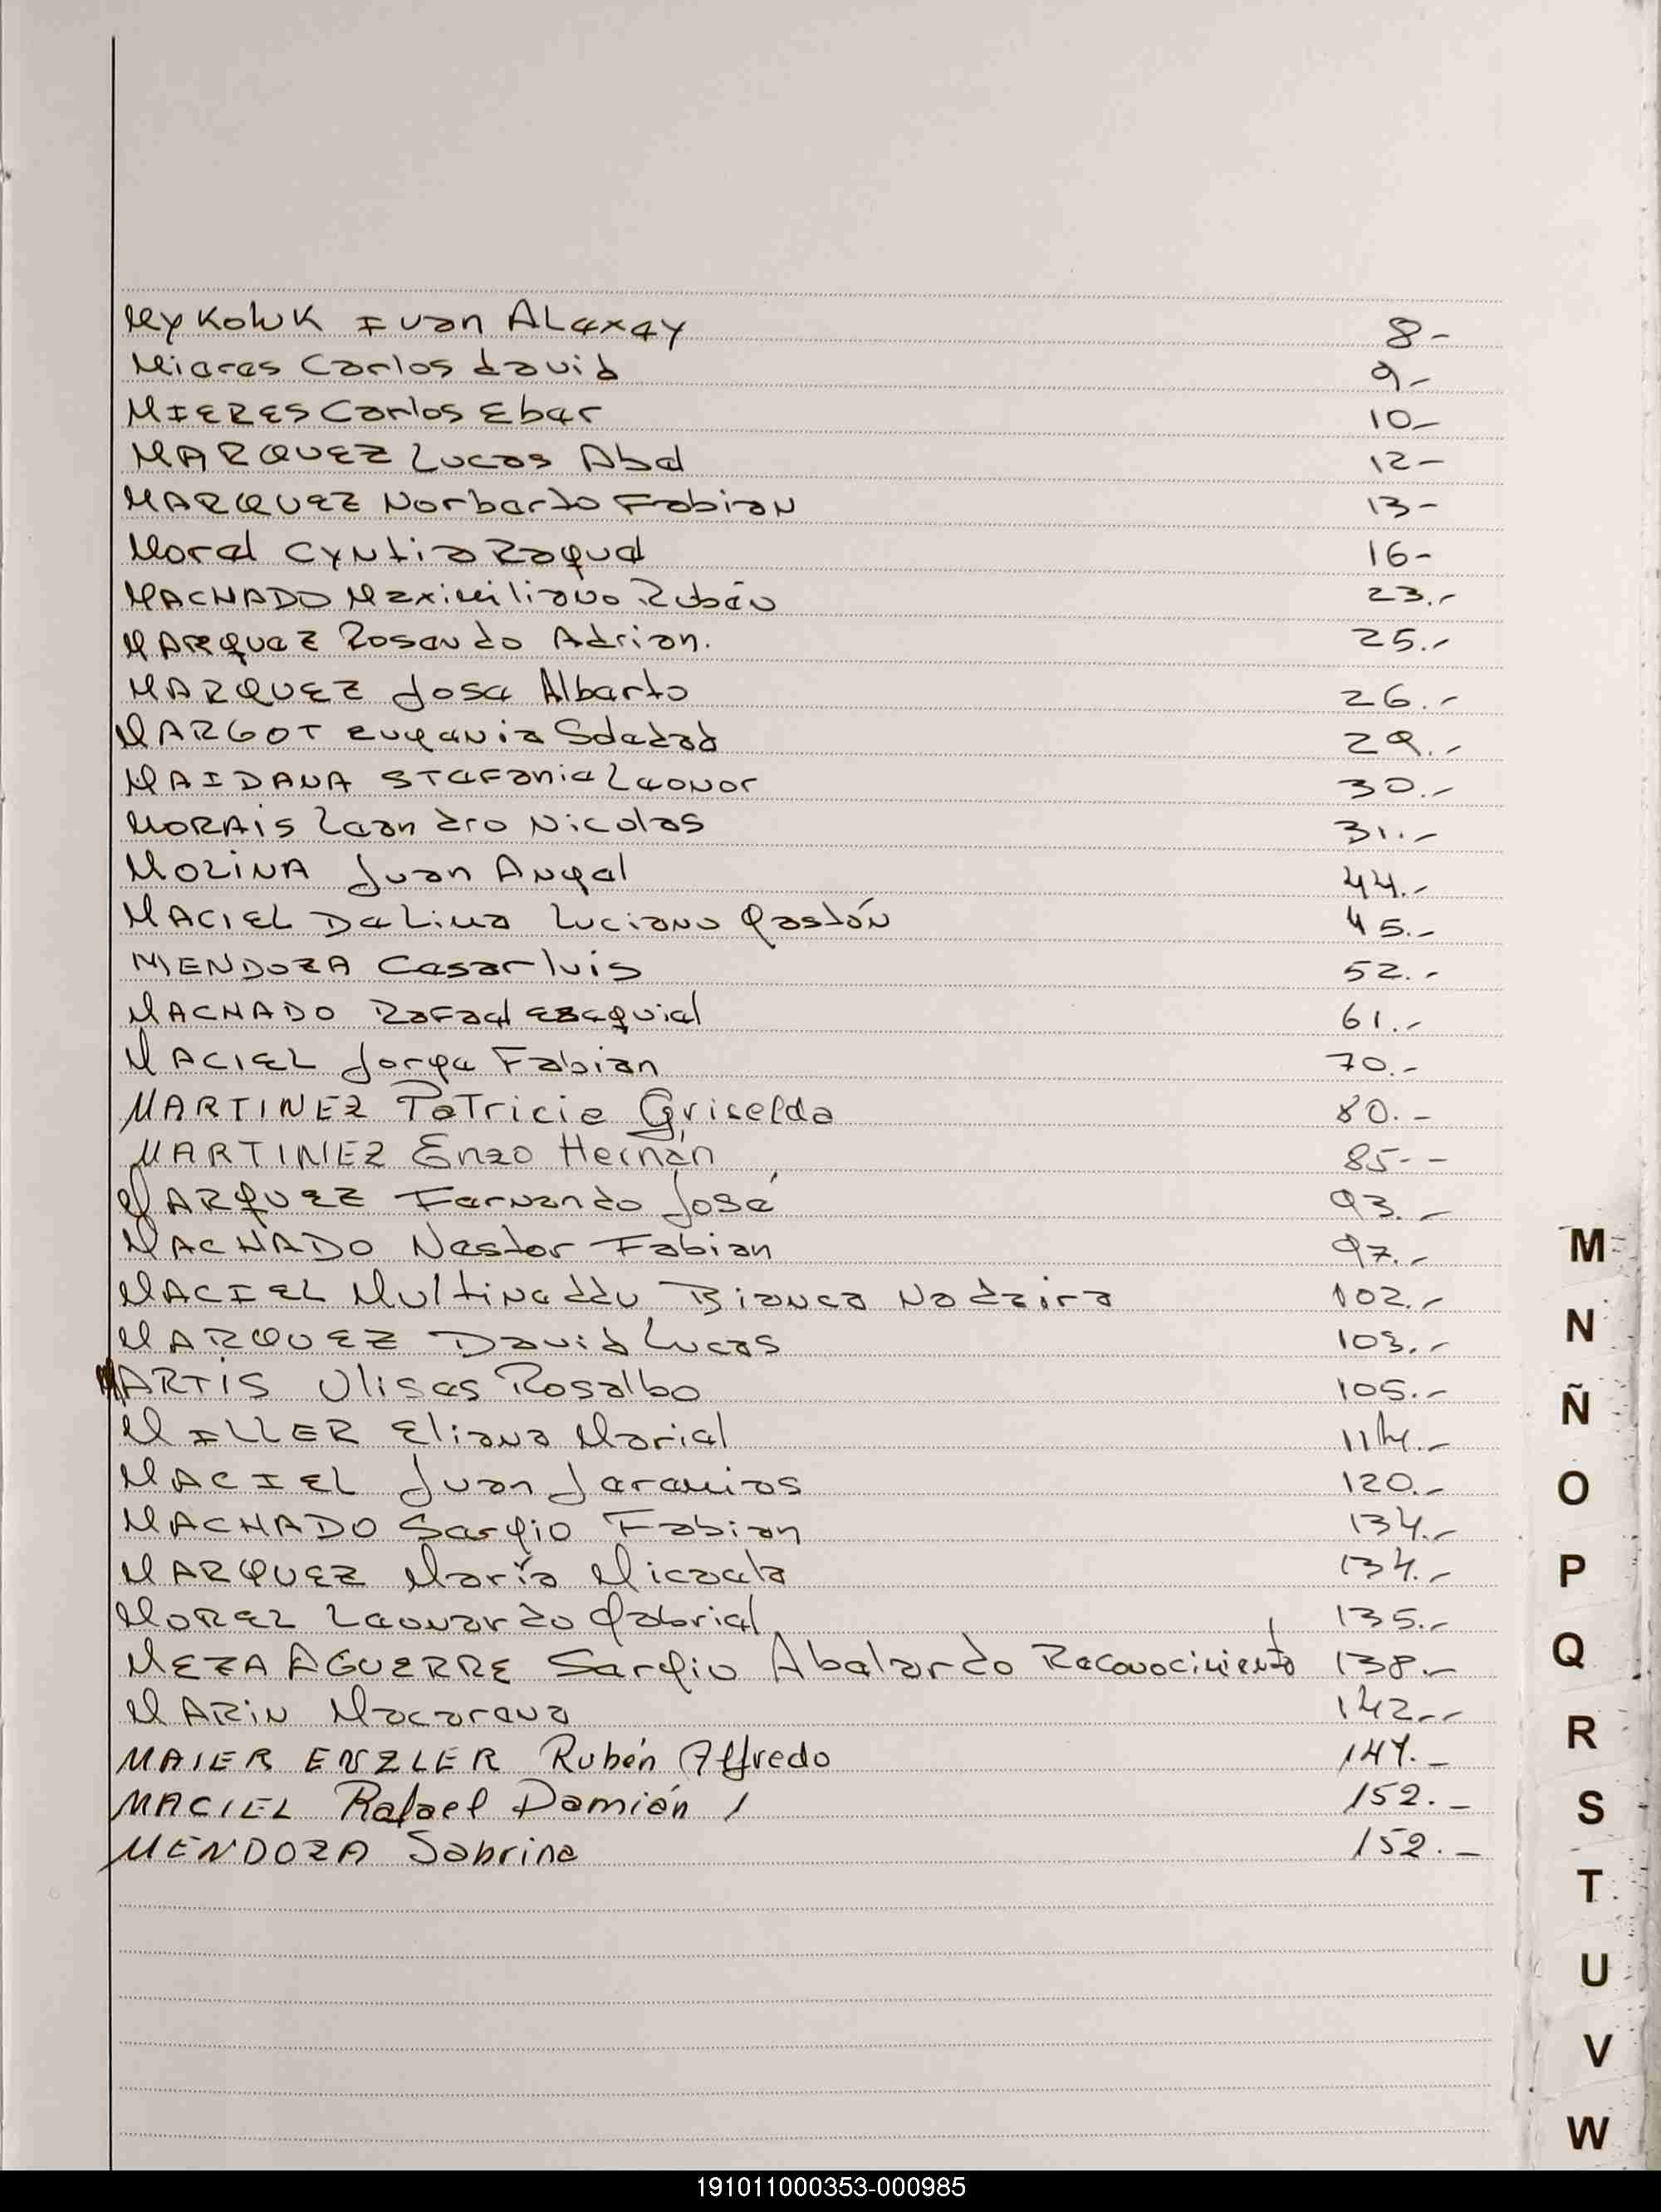 MyKoluk Ivan ALexey 8-
Mieres Carlos david 9-
MIERES Carlos Eber 10-
MARQUEZ Lucas Abel 12-
MARQUEZ Norberto Fabian 13-
Morel CyNtia Raquel 16-
MACHADO Maximiliano Rubén 23.-
MARqueZ Rosendo Adrian. 25.-
MARQUEZ Jose Alberto 26.-
MARGOT Eugenia Soledad 29.-
MAIDANA Stefania Leonor 30.-
MORAiS Leandro Nicolas 31.-
MOLiNA Juan Angel 44.-
MACIEL De Lima Luciano Gastón 45.-
MENDOZA Cesar luis 52.-
MACHADO Rafael Esequiel 61.-
MACIEL Jorge Fabian 70.-
MARTINEZ Patricia Griselda 80.-
MARTINEZ Enzo Hernán 85--
MARQUEZ Fernando José 93.-
MACHADO Nestor Fabian 97.-
MACIEL Multineddu Bianca Nadzira 102.-
MARQUEZ David Lucas 103.-
MARTiS Ulises Rosalbo 105.-
MILLER Eliana Mariel 114.-
MACIEL Juan Jeremias 120.-
MACHADO Sergio Fabian 134.-
MARQUEZ María Micaela 134.-
MOREL Leonardo Gabriel 135.-
MEZA AGUERRE Sergio Abelardo Reconocimiento 138.-
MARiN Macarena 142.-
MAIER ENZLER Rubén Alfredo 147.-
MACIEL Rafael Damión 152.-
MENDOZA Sabrina 152.-
M
N
Ñ
O
P
Q
R
S
T
U
V
W
191011000353-000985